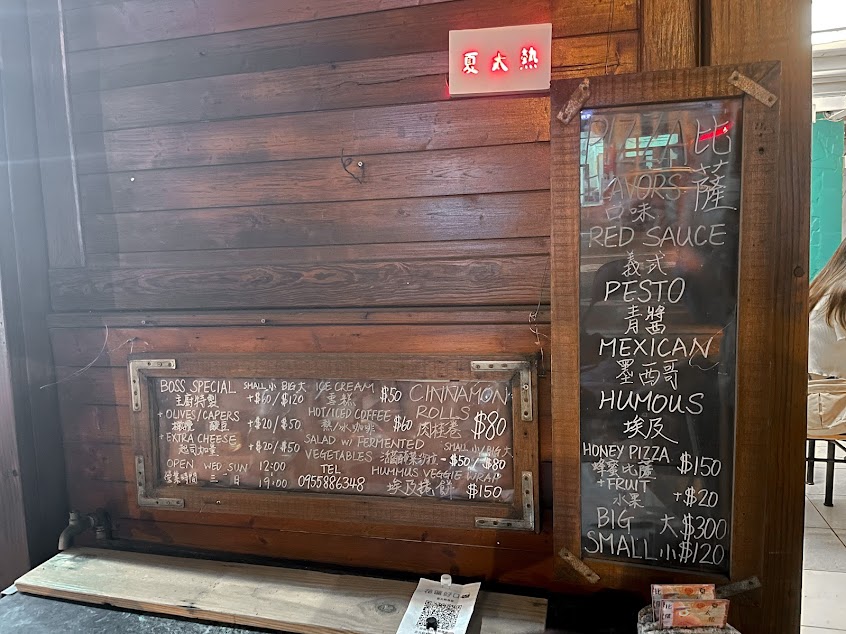 夏大熱
PIZZA 比薩
FLAVORS
口味
RED SAUCE
義式
PESTO
青醬
MEXICAN
墨西哥
HUMOUS
埃及
HONEY PIZZA $150
蜂蜜比薩
+FRUIT
水果 +$20
BIG 大 $300
SMALL 小 $120
BOSS SPECIAL SMALL小 BIG大
主廚特製 +$60/$120
+ OLIVES/CAPERS
橄欖 酸豆 +$20/$50
+ EXTRA CHEESE
起司加量 +$20/$50
OPEN WED SUN 12:00
營業時間 三-日 19:00
ICE CREAM
雪糕 $50
HOT/ICED COFFEE
熱/冰咖啡 $60
SALAD W/ FERMENTED
VEGETABLES
SMALL小 BIG大
$50/$80
TEL
0955886348
HUMMUS VEGGIE WRAP
埃及捲餅 $150
CINNAMON
ROLLS
肉桂卷 $80